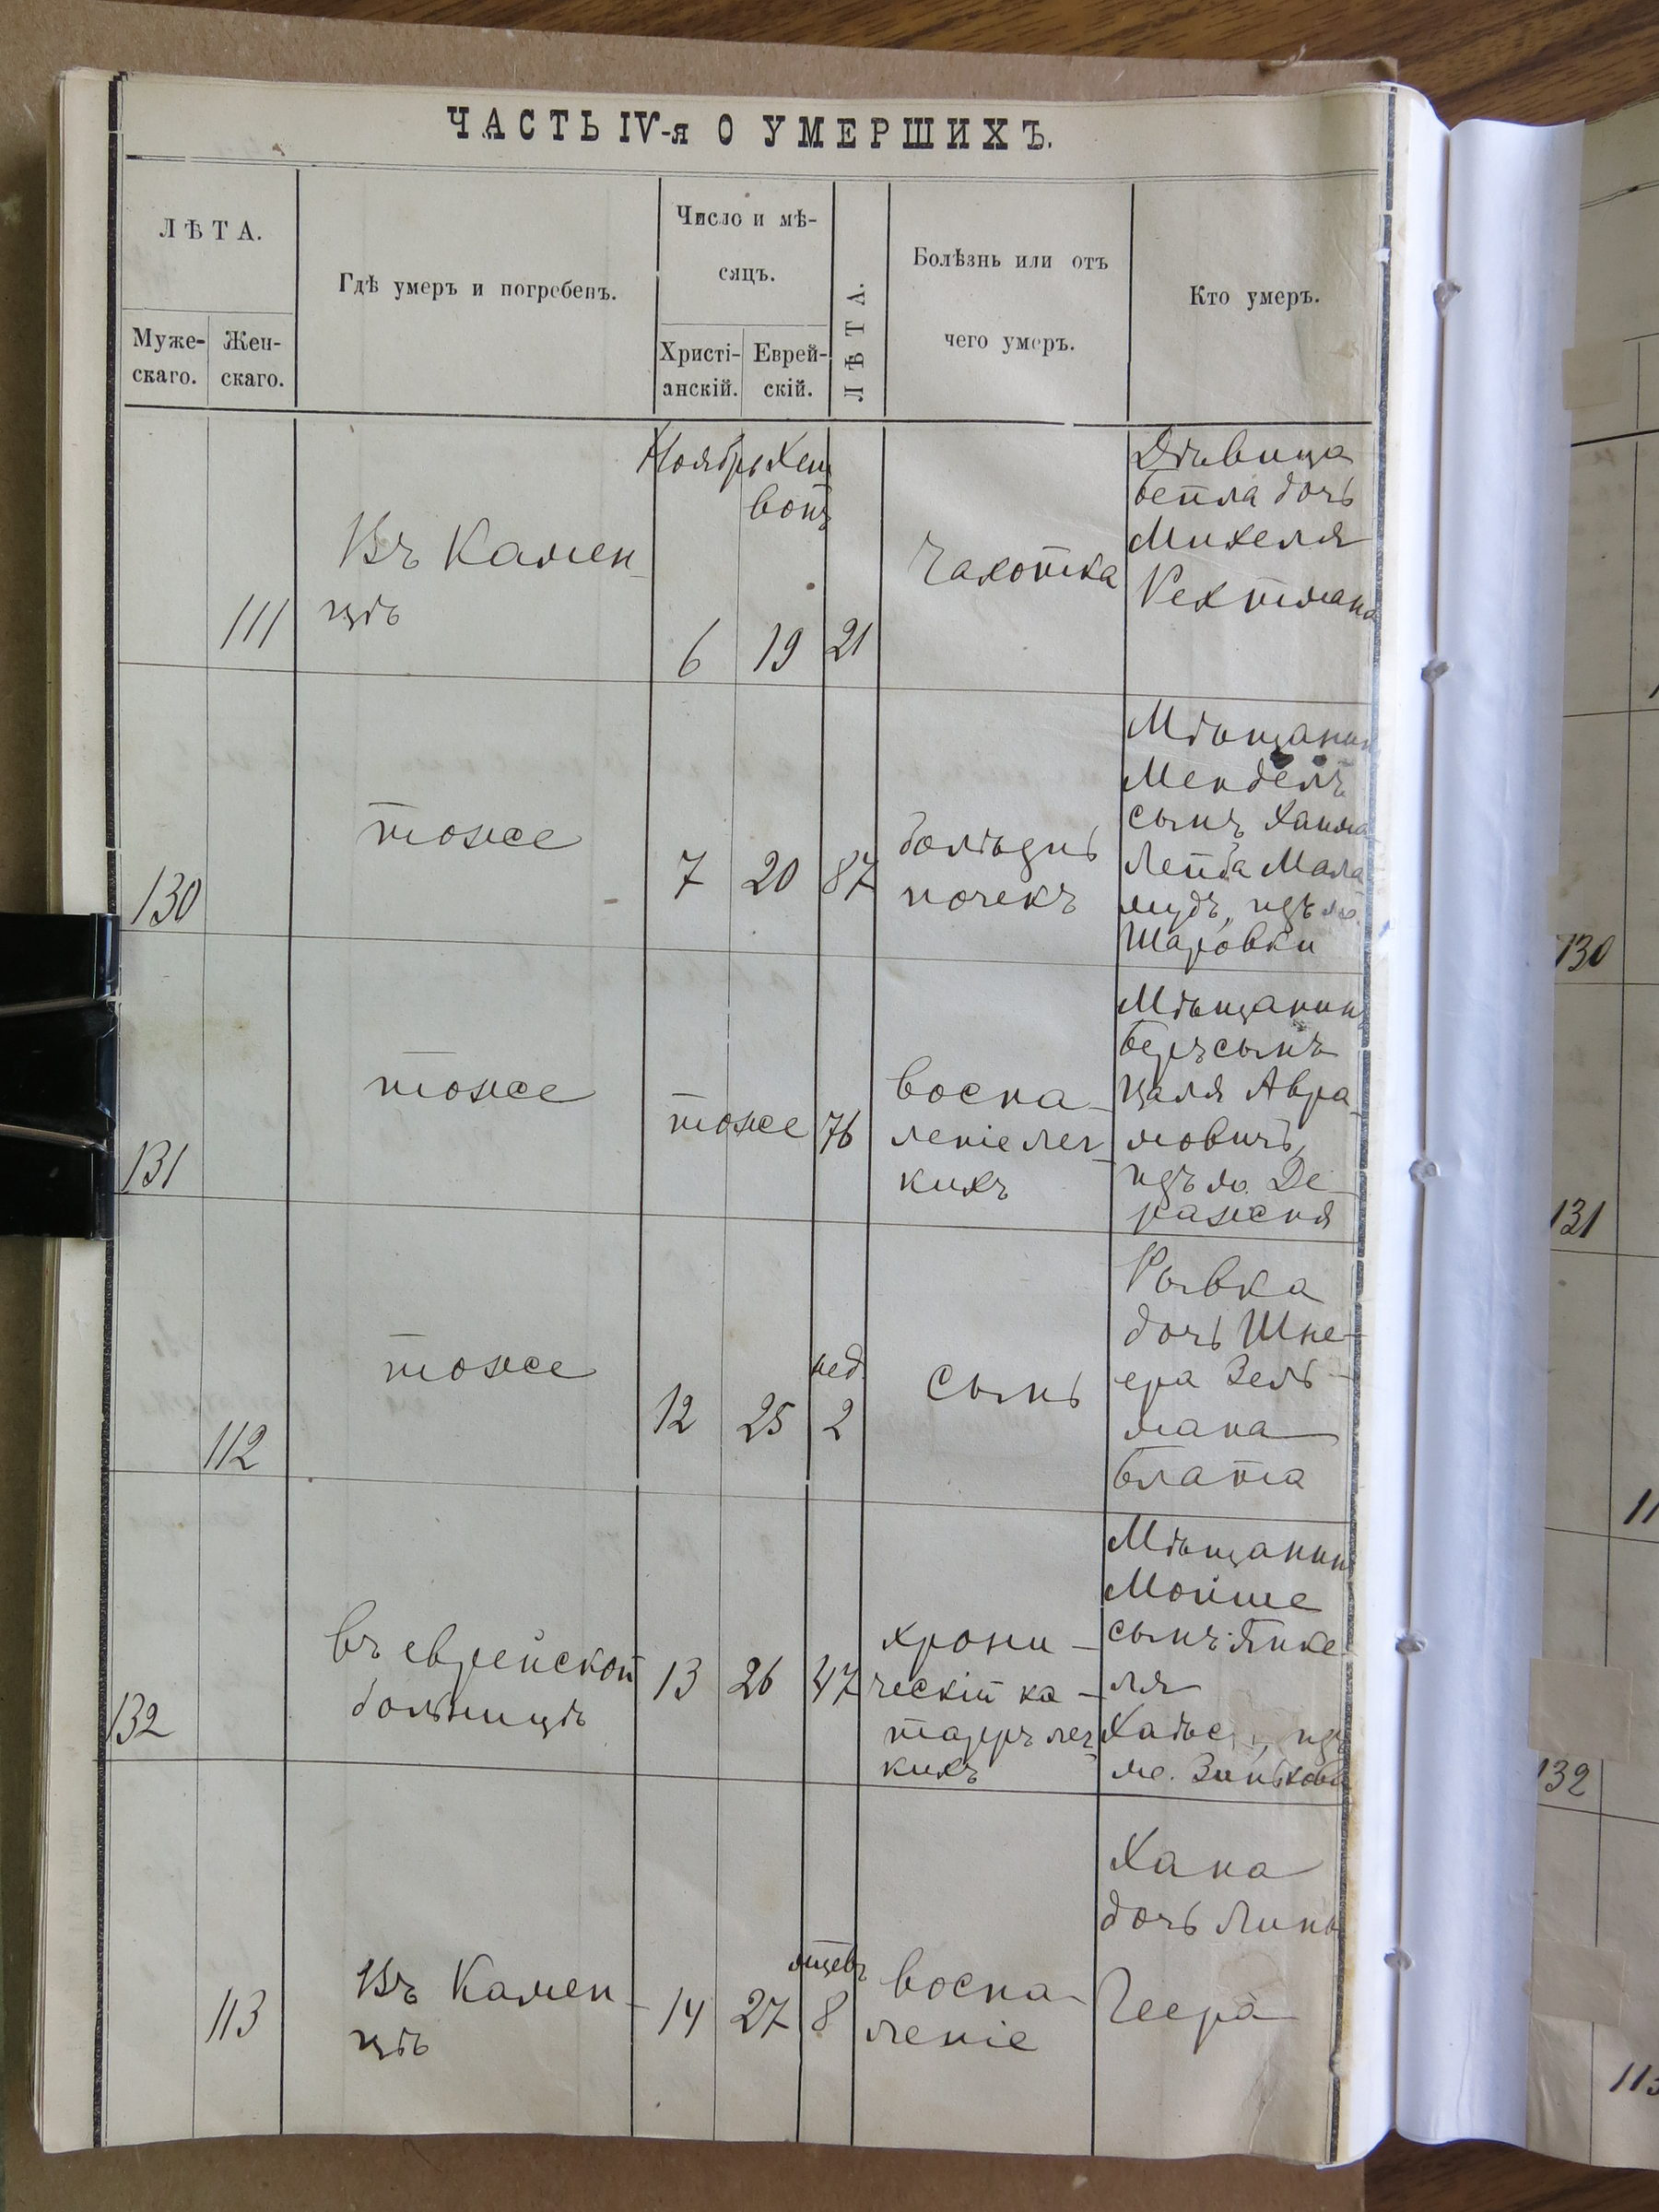 ЧАСТЬ IV-я О УМЕРШИХЪ.
ЛѢТА.
Муже-
скаго.
Жен-
скаго.
Гдѣ умеръ и погребенъ.
Число и мѣ-
сяцъ.
Христі-
анскій.
Еврей-
скій.
ЛѢТА.
Болѣзнь или отъ
чего умеръ.
Кто умеръ.
111
Въ Камен-
цѣ
Ноябрь
6
Хеш
вонъ
19
21
Чахотка
Дѣвица
Бейла дочь
Михеля
Рехтмана
130
тоже
7
20
87
болѣзнь
почекъ
Мѣщанинъ
Мендель
сынъ Хаима
Лейба Мала
мудъ, изъ м.
Шаровки
131
тоже
тоже
76
воспа-
леніе лег-
кихъ
Мѣщанинъ
Беръ сынъ
Цаля Авра-
мовичъ,
изъ м. Де-
ражня
112
тоже
12
25
нед.
2
сыпь
Рывка
дочь Шне-
ера Зель-
мана
Блата
132
въ еврейской
больницѣ
13
26
47
хрони-
ческій ка-
тарръ лег-
кихъ
Мѣщанинъ
Мойше
сынъ Янке-
ля
изъ
м. Зинькова
113
Въ Камен-
цѣ
14
27
мѣсев.
8
воспа-
леніе
Хана
дочь Липы
Геера
130
131
11
132
113